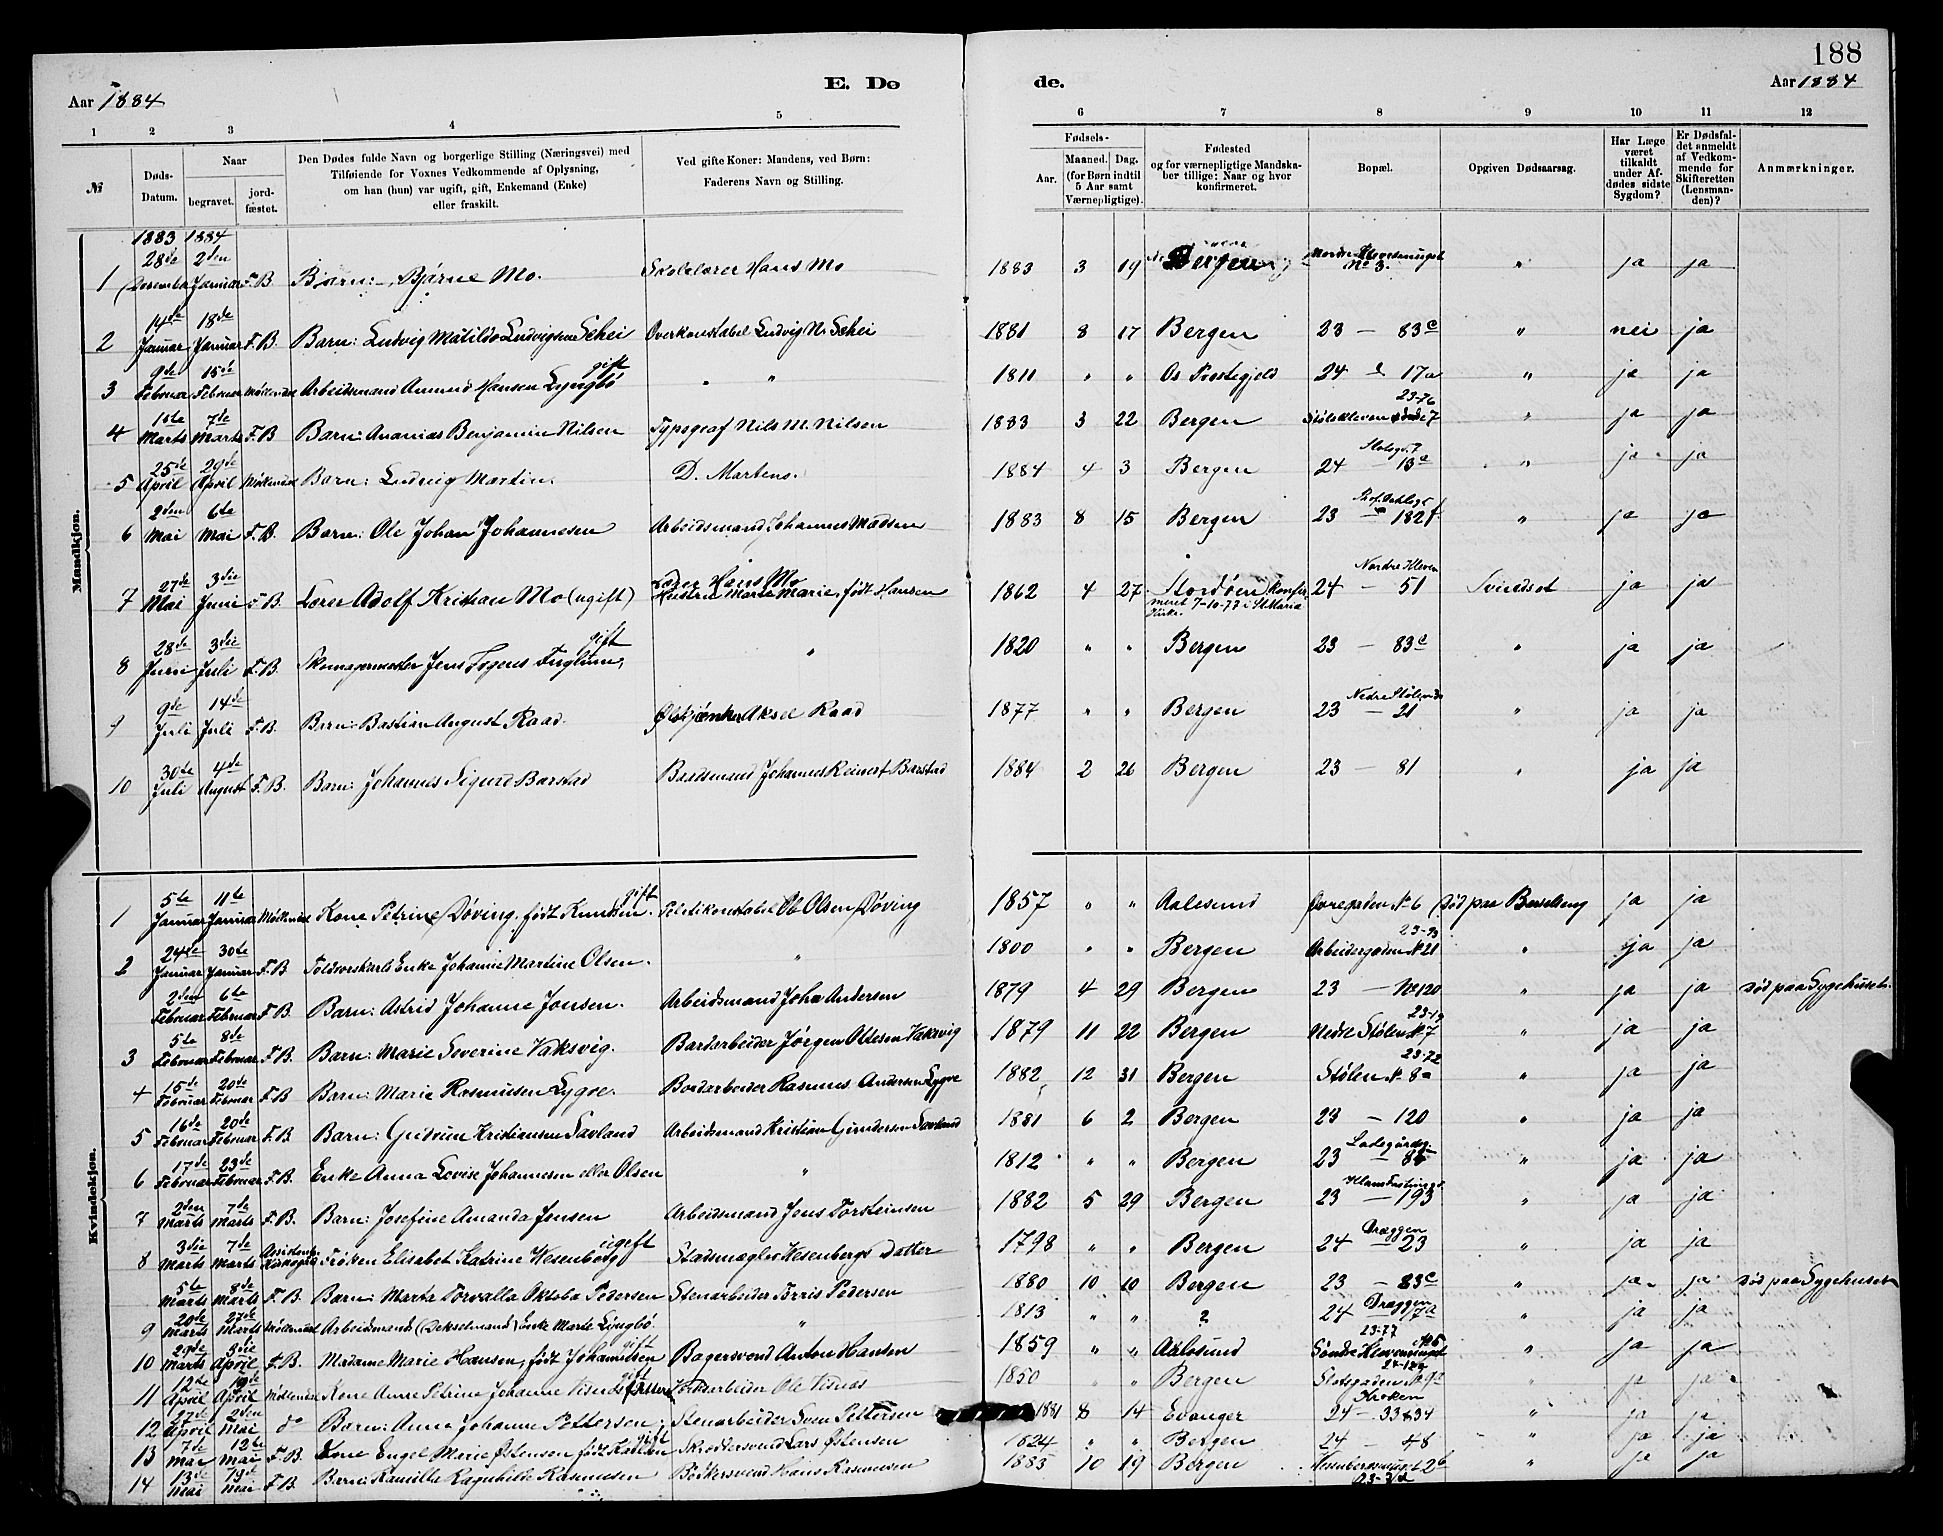 188
Aar 1884 E. Dø
de. Aar 1884
1 2 3 4 5 6 7 8 9 10 11 12
№ Døds-Datum. Naar begravet. jordfæstet. Den Dødes fulde Navn og borgerlige Stilling (Næringsvei) med Tilføiende for Voxnes Vedkommende af Oplysning, om han (hun) var ugift, gift, Enkemand (Enke) eller fraskilt. Ved gifte Koner: Mandens, ved Børn: Faderens Navn og Stilling. Fødsels- Aar. Maaned. Dag. (for Børn indtil 5 Aar samt Værnepligtige). Fødested og for værnepligtige Mandskaber tillige: Naar og hvor konfirmeret. Bopæl. Opgiven Dødsaarsag. Har Læge været tilkaldt under Afdødes sidste Sygdom? Er Dødsfaldet anmeldt af Vedkommende for Skifteretten (Lensmanden)? Anmærkninger.
Mandkjøn.
1883 1884
1 28de December 2den Januar F.B. Barn: Bjarne Mo. Skolelærer Hans Mo 1883 3 19 Bergen Nordre Klevesmuget No 3. " ja ja
2 14de Januar 18de Januar F.B. Barn: Ludvig Matildo Ludvigsen Schei Overkonstabel Ludvig N. Schei 1881 8 17 Bergen 23 — 83c " nei ja
3 9de Februar 15de Februar Møllendal Arbeidsmand Amund Hansen Lyngbø gift " " 1811 " " Os Prestegjeld 24 17a " ja ja
4 1ste Marts 7de Marts F.B. Barn: Ananias Benjamin Nilsen Typograf Nils M. Nilsen 1883 3 22 Bergen 23-76 Stølekleven 7 " ja ja
5 25de April 29de April Møllendal Barn: Ludvig Martin. D. Martens. 1884 4 3 Bergen Slotsg. 7 24 — 13c " ja ja
6 2den Mai 6te Mai F.B. Barn: Ole Johan Johannesen Arbeidsmand Johannes Madsen 1883 8 15 Bergen 23 — 182f " ja ja
7 27de Mai 3die Juni F.B. Lærer Adolf Kristian Mo (ugift) Lærer Hans Mo Hustru Marte Marie, født Hansen 1862 4 27 Stordøen (konfirmeret 7-10-77 i St. Maria Kirke. Nordre Kleven 24 — 51 Svindsot ja ja
8 28de Juni 3die Juli F.B. Skomagermester Jens Fogens Fuglum, gift " 1820 " " Bergen 23 — 83c " ja ja
9 9de Juli 14de Juli F.B. Barn: Bastian August Raad. Ølskjænker Aksel Raad 1877 " " Bergen Nedre Stølen 23 — 21 " ja ja
10 30te Juli 4de August F.B. Barn: Johannes Sigurd Barstad Baadsmand Johannes Reinert Barstad 1884 2 26 Bergen 23 — 81 " ja ja
Kvindekjøn.
1 5te Januar 11te Januar Møllendal Kone Petrine Døving, født Knudsen. gift Politikonstabel Ole Olsen Døving 1857 " " Aalesund Øvregaden No 6 Død paa Barselseng ja ja
2 24de Januar 30te Januar F.B. Toldvorskarls Enke Johanne Martine Olsen. " 1800 " " Bergen 23-93 Arbeidergaden No 21 " ja ja
2den Februar 6te Februar F.B. Barn: Astrid Johanne Jonsen. Arbeidsmand John Andersen 1879 4 29 Bergen 23 — No 120 " ja ja Død paa Sygehuset.
3 5te Februar 8de Februar F.B. Barn: Marie Severine Vaksvig. Bordarbeider Jørgen Oldesen Vaksvig 1879 11 22 Bergen 23-19 Nedre Stølen No 7 " ja ja
4 15de Februar 20de Februar F.B. Barn: Marie Rasmusen Lygre. Bordarbeider Rasmus Andersen Lygre 1882 12 31 Bergen 23-72 Stølen No 8a " ja ja
5 16de Februar 20de Februar F.B. Barn: Gudrun Kristiansen Savland Arbeidsmand Kristian Gundersen Savland 1881 6 2 Bergen 23 — 120 " ja ja
6 17de Februar 23de Februar F.B. Enke Anna Lovise Johannesen eller Olsen " 1812 " " Bergen Ladegårdsg. 23 — " ja ja
7 2den Marts 7de Marts F.B. Barn: Josefine Amanda Jensen Arbeidsmand Jens Torsteinsen 1882 5 29 Bergen 23 — 193 " ja ja
8 3die Marts 7de Marts Assistent Kirkegård Frøken Elisabet Katrine Hesenberg ugift Stadsmægler Hesenbergs Datter 1798 " " Bergen Dræggen 24 — 23 " ja ja
5te Marts 8de Marts F.B. Barn: Marta Torvalla Okteba Pedersen Stenarbeider Torris Pedersen 1880 10 10 Bergen 23 — 83c " ja ja Død paa Sygehuset
9 20de Marts 27de Marts Møllendal Arbeidsmands (Dekselmands) Enke Marte Lingbø. " 1813 " " ? Dræggen 24 — 17a " ja ja
10 29de Marts 3die April F.B. Madame Marie Hansen, født Johannesen gift Bagersvend Anton Hansen 1859 " " Aalesund 23-77 Søndre Klevesmuget No 5 " ja ja
11 12te April 19de April Møllendal Kone Anne Petrine Johanne Visnes gift Jordarbeider Ole Visnes 1850 " " Bergen Slotsgaden No 9a " ja ja
12 27de April 2den Mai do Barn: Anna Johanne Pettersen Stenarbeider Sven Pettersen 1881 8 14 Evanger Kroken 24 — 33&34 " ja ja
13 7de Mai 12te Mai F.B. Kone Engel Marie Østensen født Karlsen gift Skræddersvend Lars Østensen 1824 " " Bergen 24 — 48 " ja ja
14 13de Mai 19de Mai F.B. Barn: Kamilla Ragnhilde Rasmusen Bødkersvend Hans Rasmusen 1883 10 19 Bergen Hesenbergsmuget 2b " ja ja